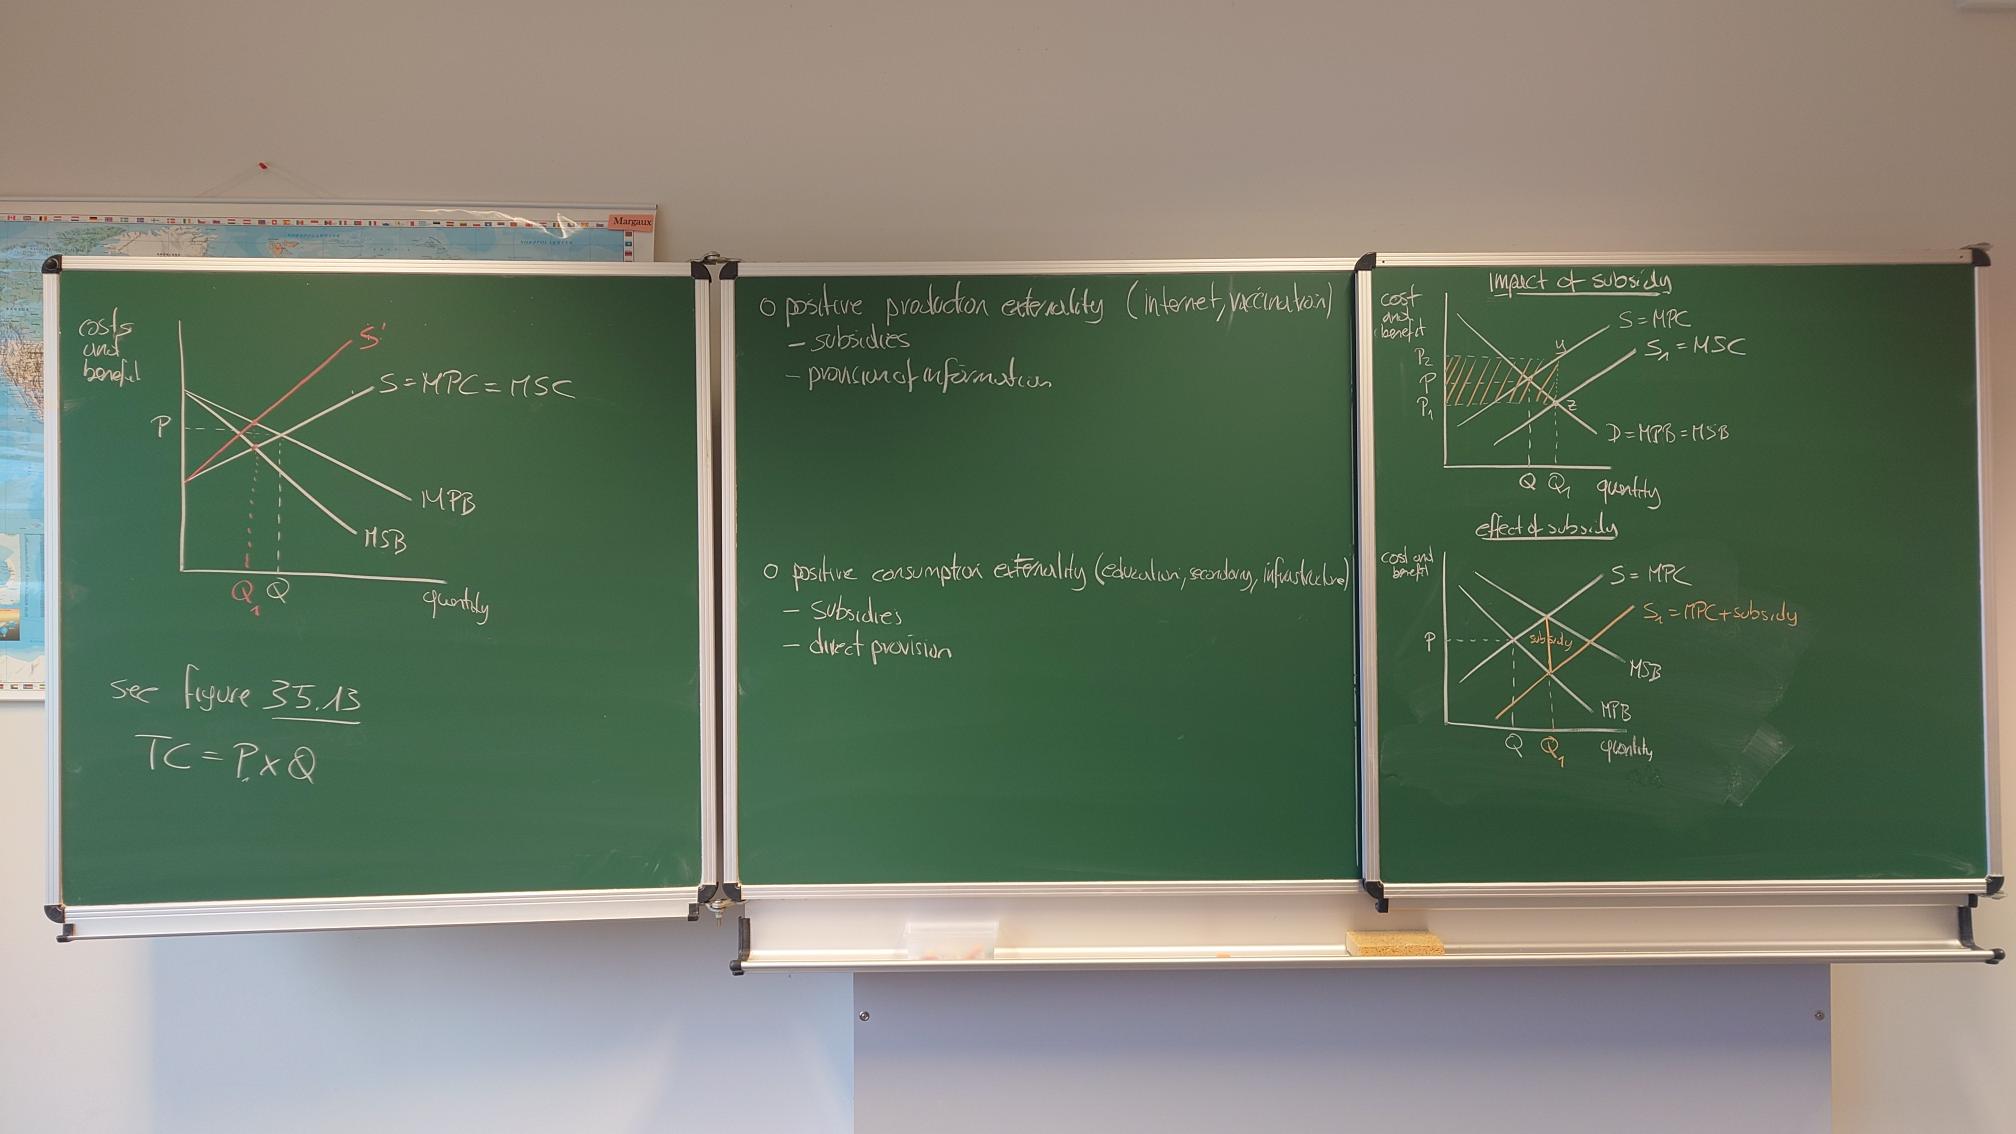 Margaux
costs
and
benefit
S'
S = MPC = MSC
P
MPB
MSB
Q₁ Q
quantity
see figure 35.13
TC = P x Q
o positive production externality (internet, vaccination)
– subsidies
– provision of information
o positive consumption externality (education, secondary, infrastructure)
– subsidies
– direct provision
Impact of subsidy
cost
and
benefit
S = MPC
S₁ = MSC
y
P₂
P
P₁
z
D = MPB = MSB
Q Q₁ quantity
effect of subsidy
cost and
benefit
S = MPC
S₁ = MPC + subsidy
P
subsidy
MSB
MPB
Q Q₁ quantity